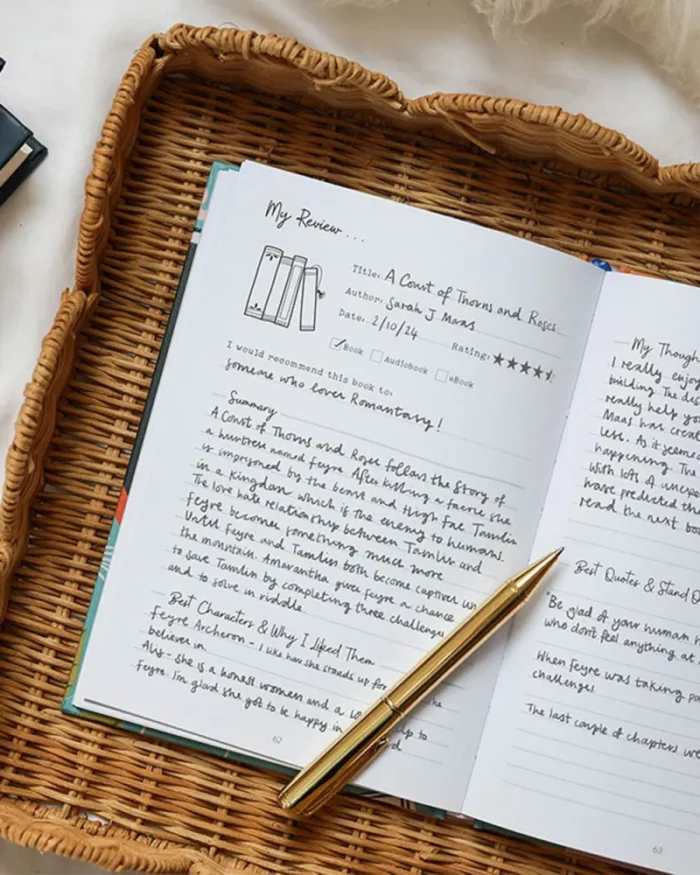 My Review...
Title: A Court of Thorns and Roses
Author: Sarah J Maas
Date: 2/10/24 Rating: ★★★★★
Book Audiobook eBook
I would recommend this book to:
Someone who loves Romantasy!
Summary
A Court of Thorns and Roses follows the story of
a huntress named Feyre. After killing a faerie she
is imprisoned by the beast and High Fae Tamlin
in a kingdom which is the enemy to humans.
The love hate relationship between Tamlin and
Feyre becomes something much more
Until Feyre and Tamlin both become captives un
the mountain. Amarantha gives Feyre a chance
to save Tamlin by completing three challenges
and to solve in riddle.
Best Characters & Why I Liked Them
Feyre Archeron - I like how she stands up for he
believes in
Alis - she is a honest women and a to
Feyre. I'm glad she got to be happy in
62
My Though
I really enjoy
building. The des
really help yo
Maas has creat
less. As it seemed
happening. Thi
With lots of unexp
have predicted the
read the next boo
Best Quotes & Stand O
"Be glad of your human
who don't feel anything at
When Feyre was taking pa
challenges.
The last couple of chapters we
63